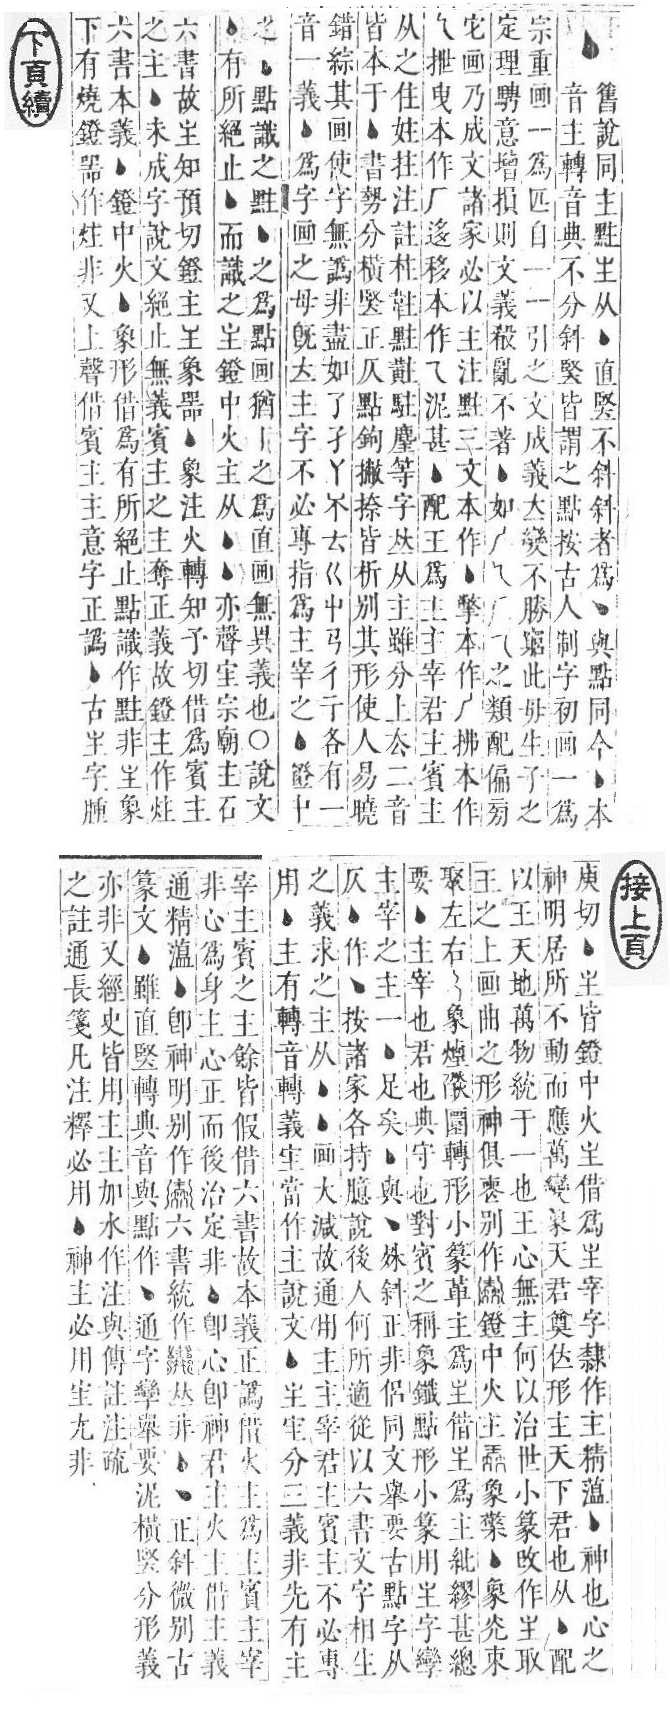 舊說同主黈𪐴从丶直竪不斜斜者爲丶與點同今丶本
音主轉音典不分斜竪皆謂之點按古人制字初画一爲
宗重画一爲匹自一一引之文成義大變不勝窮此毋生子之
定理騁意增損則文義殺亂不著丶如 之類配偏旁
它画乃成文諸家必以主注黈三文本作丶擎本作 拂本作
乀抴曳本作厂迻移本作乁泥甚丶配王爲主主宰君主賓主
从之住妵拄注註柱 黈 駐麈等字 从主雖分上厺二音
皆本于丶書勢分橫竪正仄點鉤撇捺皆析別其形使人易曉
錯綜其画使字無譌非盡如了孑丫不厶巜中丂彳亍各有一
音一義丶爲字画之母旣 主字不必專指爲主宰之丶鐙中
之丶點識之黈丶之爲點画猶丨之爲直画無異義也〇說文
丶有所絕止丶而識之𪐴鐙中火主从丶丶亦聲宔宗廟主石
六書故𪐴知預切鐙主王象器丶象注火轉知予切借爲賓主
之主丶未成字說文絕止無義賓主之主奪正義故鐙主作炷
六書本義丶鐙中火丶象形借爲有所絕止點識作黈非𪐴象
下有燒鐙器作炷非又上聲借賓主主意字正譌丶古𪐴字腫
下頁續
接上頁
庾切丶𪐴皆鐙中火𪐴借爲𪐴宰字隸作主精薀丶神也心之
神明居所不動而應萬變 天君奠 形主天下君也从丶配
以王天地萬物統于一也王心無主何以治世小篆改作𪐴取
王之上画曲之形神俱喪別作 鐙中火主 象 丶象炎束
聚左右 象煙 圛轉形小篆革主爲𪐴借𪐴爲主紕繆甚總
要丶主宰也君也典守也對賓之稱象鐵點形小篆用𪐴字孿
主宰之主一丶足矣丶與丶殊斜正非侶同文舉要古點字从
仄丶作丶按諸家各持臆說後人何所適從以六書文字相生
之義求之主从丶丶画大減故通用主主宰君主賓主不必專
用丶主有轉音轉義宔當作主說文丶𪐴宔分三義非先有主
宰主賓之主餘皆假借六書故本義正譌借火主爲主賓主宰
非心爲身主心正而後治定非丶卽心卽神君主火主借主義
通精薀丶卽神明別作 六書統作 非丶丶正斜微別古
篆文丶雖直竪轉典音與點作丶通字孿舉要泥橫竪分形義
亦非又經史皆用主主加水作注與傳註注疏
之註通長箋凡注釋必用丶神主必用宔尢非